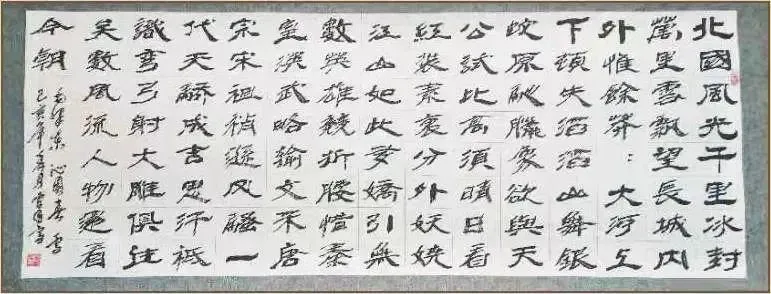 北國風光千里冰封
萬里雪飄望長城内
外惟餘莽〻大河上
下頓失滔滔山舞銀
蛇原馳臘象欲與天
公試比高須晴日看
紅裝素裹分外妖嬈
江山如此多嬌引無
數英雄競折腰惜秦
皇漢武略輸文采唐
宗宋祖稍遜風騷一
代天驕成吉思汗祗
識彎弓射大雕俱往
矣數風流人物還看
今朝
毛澤東 沁園春 雪
己亥年